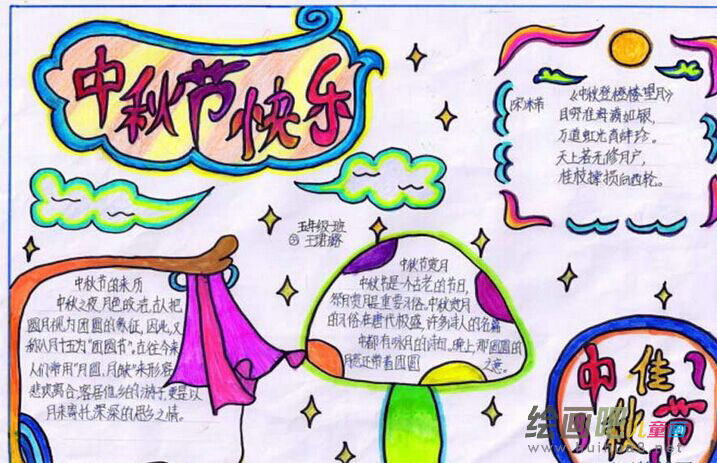 中秋节快乐
五年级一班
王珺潞
宋·米芾
《中秋登楼望月》
目穷淮海满如银,
万道虹光育蚌珍。
天上若无修月户,
桂枝撑损向西轮。
中秋节的来历
中秋之夜,月色皎洁,古人把
圆月视为团圆的象征,因此,又
称八月十五为“团圆节”。古往今来,
人们常用“月圆、月缺”来形容
悲欢离合,客居他乡的游子,更是以
月来寄托深深的思乡之情。
中秋节赏月
中秋节是一个古老的节日,
祭月赏月是重要习俗。中秋赏月
的习俗在唐代极盛,许多诗人的名篇
中都有咏月的诗句。晚上,那圆圆的
月亮还带着团圆之意。
中秋佳节
绘画吧儿童画